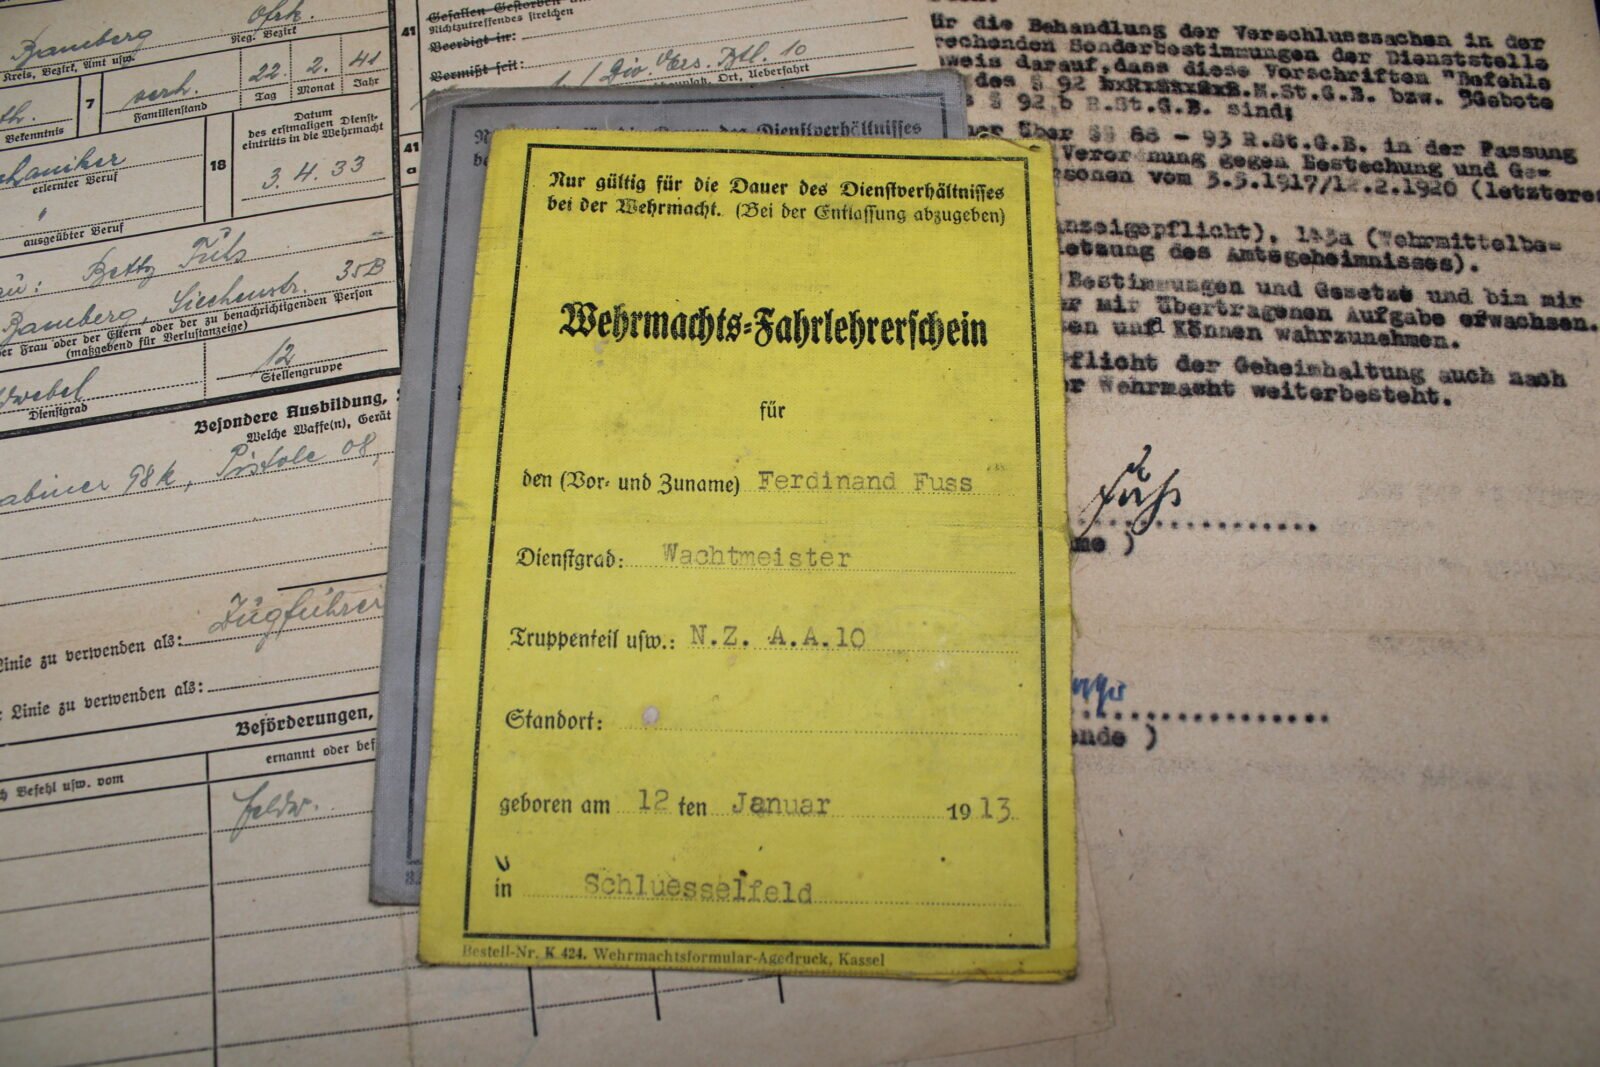 Bamberg Ofrk.
Kreis, Bezirk, Amt usw. Reg. Bezirk
7 verh. 22. 2. 41
Bekenntnis Familienstand Tag Monat Jahr
erlernter Beruf
18 Datum
des erstmaligen Dienst-
eintritts in die Wehrmacht
3. 4. 33
ausgeübter Beruf
Betty
Bamberg, Siechenstr. 35B
der Frau oder der Eltern oder der zu benachrichtigenden Person
(maßgebend für Verlustanzeige)
12
Dienstgrad Stellengruppe
Besondere Ausbildung,
Welche Waffe(n), Gerät
98k, Pistole 08,
Linie zu verwenden als: Zugführer
Linie zu verwenden als:
Beförderungen,
Befehl usw. vom ernannt oder
Feldw.
41 Gefallen Gestorben
Nichtzutreffendes streichen
Beerdigt in:
Vermißt seit:
Div. Vers. Btl. 10
Ort, Ueberfahrt
41
a
Dienstverhältnisses
Nur gültig für die Dauer des Dienstverhältnisses
bei der Wehrmacht. (Bei der Entlassung abzugeben)
Wehrmachts=Fahrlehrerschein
für
den (Vor- und Zuname) Ferdinand Fuss
Dienstgrad: Wachtmeister
Truppenteil usw.: N.Z. A.A.10
Standort:
geboren am 12 ten Januar 1913
in Schluesselfeld
Bestell-Nr. K 424. Wehrmachtsformular-Agedruck, Kassel
für die Behandlung der Verschlusssachen in der
Sonderbestimmungen der Dienststelle
darauf, dass diese Vorschriften "Befehle
des § 92 M.St.G.B. bzw. "Gebote
§ 92 b R.St.G.B. sind;
über §§ 88 - 93 R.St.G.B. in der Fassung
Verordnung gegen Bestechung und Ge-
vom 3.5.1917/12.2.1920 (letzteres
(Wehrmittelbe-
des Amtsgeheimnisses).
Bestimmungen und Gesetze und bin mir
mir übertragenen Aufgabe erwachsen.
und Können wahrzunehmen.
der Geheimhaltung auch nach
Wehrmacht weiterbesteht.